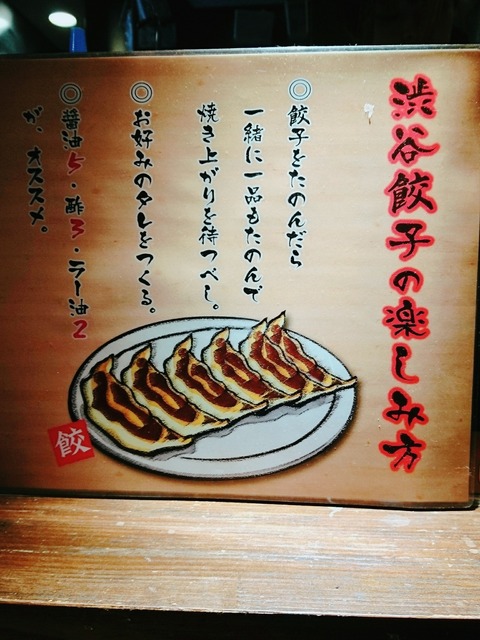 渋谷餃子の楽しみ方
◎餃子をたのんだら
一緒に一品もたのんで
焼き上がりを待つべし。
◎お好みのタレをつくる。
◎醤油5・酢3・ラー油2
が、オススメ。
餃